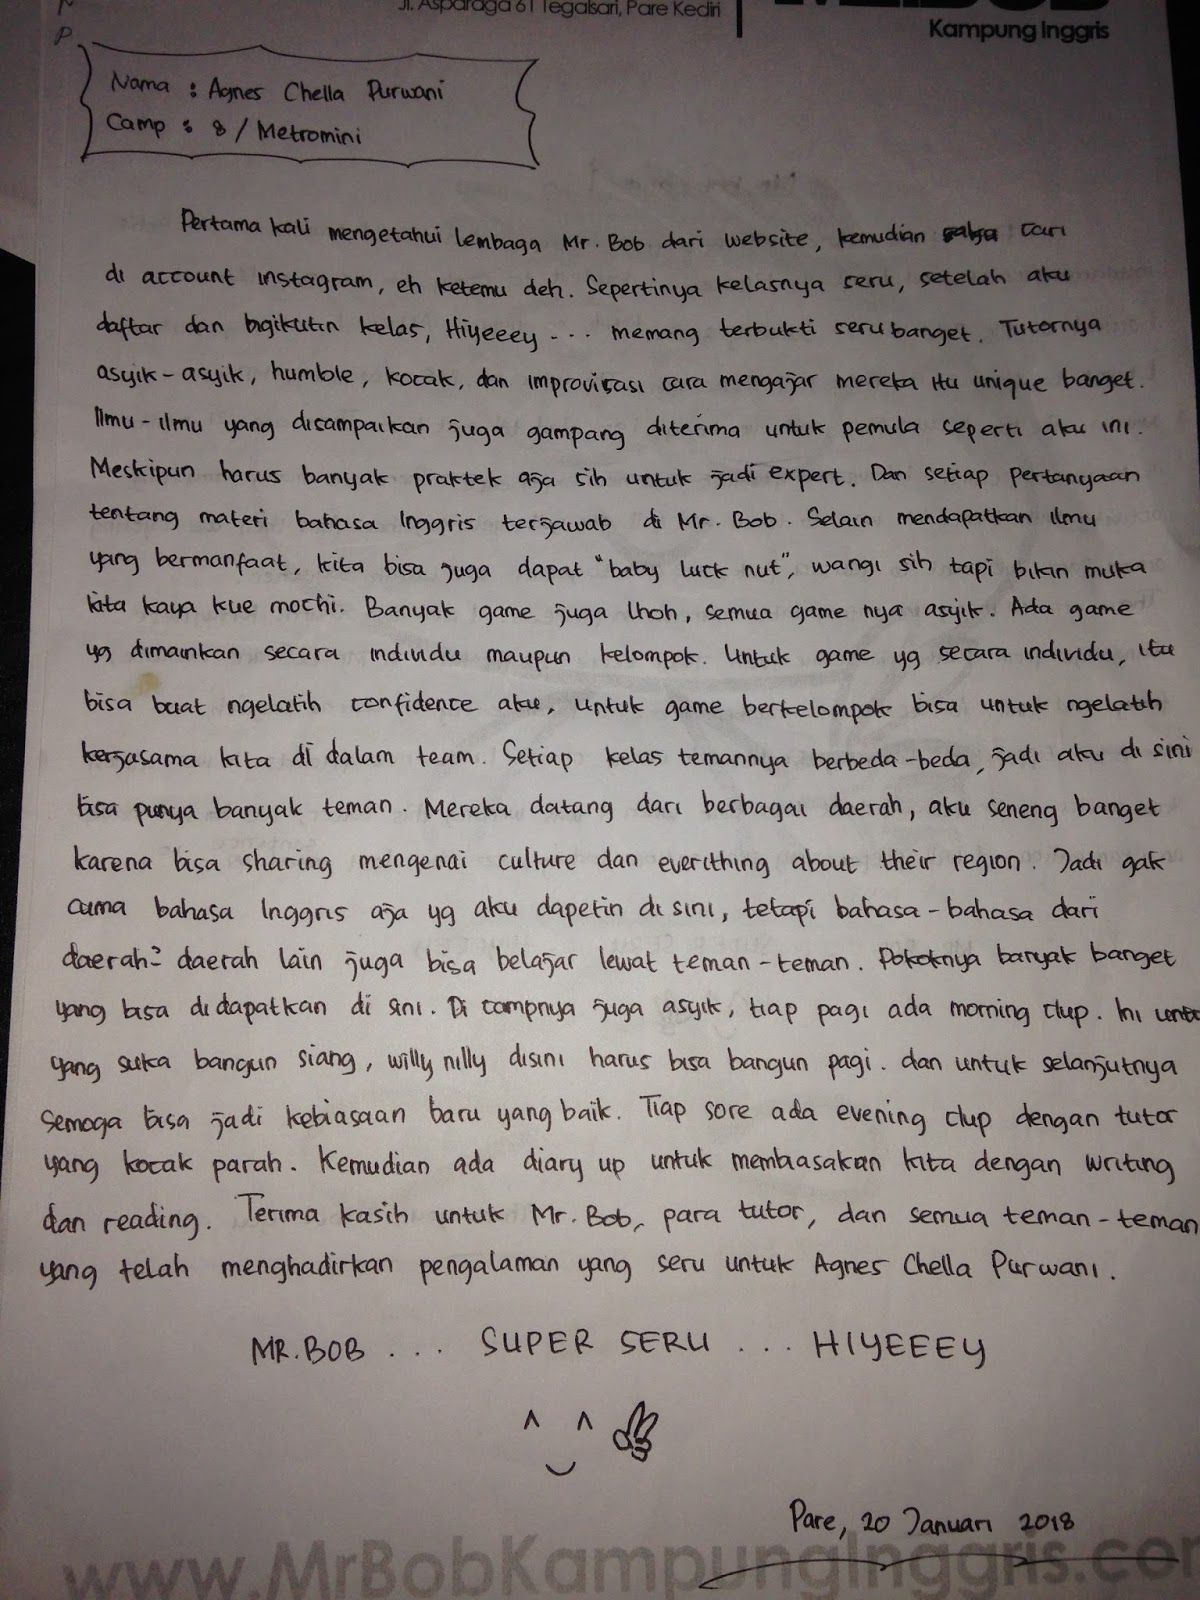 Jl. Asparaga 61 Tegalsari, Pare Kediri
Kampung Inggris
P
Nama : Agnes Chella Purwani
Camp : 8 / Metromini
Pertama kali mengetahui lembaga Mr. Bob dari website, kemudian cari
di account instagram, eh ketemu deh. Sepertinya kelasnya seru, setelah aku
daftar dan ngikutin kelas, Hiyeeey ... memang terbukti seru banget. Tutornya
asyik-asyik, humble, kocak, dan improvisasi cara mengajar mereka itu unique banget.
Ilmu-ilmu yang disampaikan juga gampang diterima untuk pemula seperti aku ini.
Meskipun harus banyak praktek aja sih untuk jadi expert. Dan setiap pertanyaan
tentang materi bahasa Inggris terjawab di Mr. Bob. Selain mendapatkan ilmu
yang bermanfaat, kita bisa juga dapat "baby luck nut", wangi sih tapi bikin muka
kita kaya kue mochi. Banyak game juga lhoh, semua game nya asyik. Ada game
yg dimainkan secara individu maupun kelompok. Untuk game yg secara individu, itu
bisa buat ngelatih confidence aku, untuk game berkelompok bisa untuk ngelatih
kerjasama kita di dalam team. Setiap kelas temannya berbeda-beda, jadi aku di sini
bisa punya banyak teman. Mereka datang dari berbagai daerah, aku seneng banget
karena bisa sharing mengenai culture dan everithing about their region. Jadi gak
cuma bahasa Inggris aja yg aku dapetin di sini, tetapi bahasa-bahasa dari
daerah-daerah lain juga bisa belajar lewat teman-teman. Pokoknya banyak banget
yang bisa didapatkan di sini. Di campnya juga asyik, tiap pagi ada morning clup. Ini
yang suka bangun siang, willy nilly disini harus bisa bangun pagi. dan untuk selanjutnya
semoga bisa jadi kebiasaan baru yang baik. Tiap sore ada evening clup dengan tutor
yang kocak parah. Kemudian ada diary up untuk membiasakan kita dengan writing
dan reading. Terima kasih untuk Mr. Bob, para tutor, dan semua teman-teman
yang telah menghadirkan pengalaman yang seru untuk Agnes Chella Purwani.
MR. BOB ... SUPER SERU ... HIYEEEY
Pare, 20 Januari 2018
www.MrBobKampungInggris.com